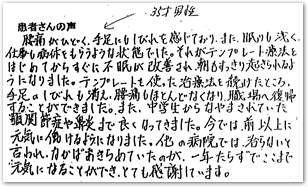 35才 男性
患者さんの声
腰痛がひどく、手足にもしびれを感じており、また、眠りも浅く、
仕事も病休をもらうような状態でした。それがテンプレート療法を
はじめてからすぐに不眠が改善され、朝もすっきり起きられるよ
うになりました。テンプレートを使った治療法を続けたところ、
手足のしびれも消え、腰痛もほとんどなくなり、職場へ復帰
することができました。また、中学生からなやまされていた
顎関節症や鼻炎まで良くなってきました。今では、前以上に
元気に働けるようになりました。他の病院では、治らないと
言われ、なかばあきらめていたのが、一年たらずでここまで
元気になることができ、とても感謝しています。